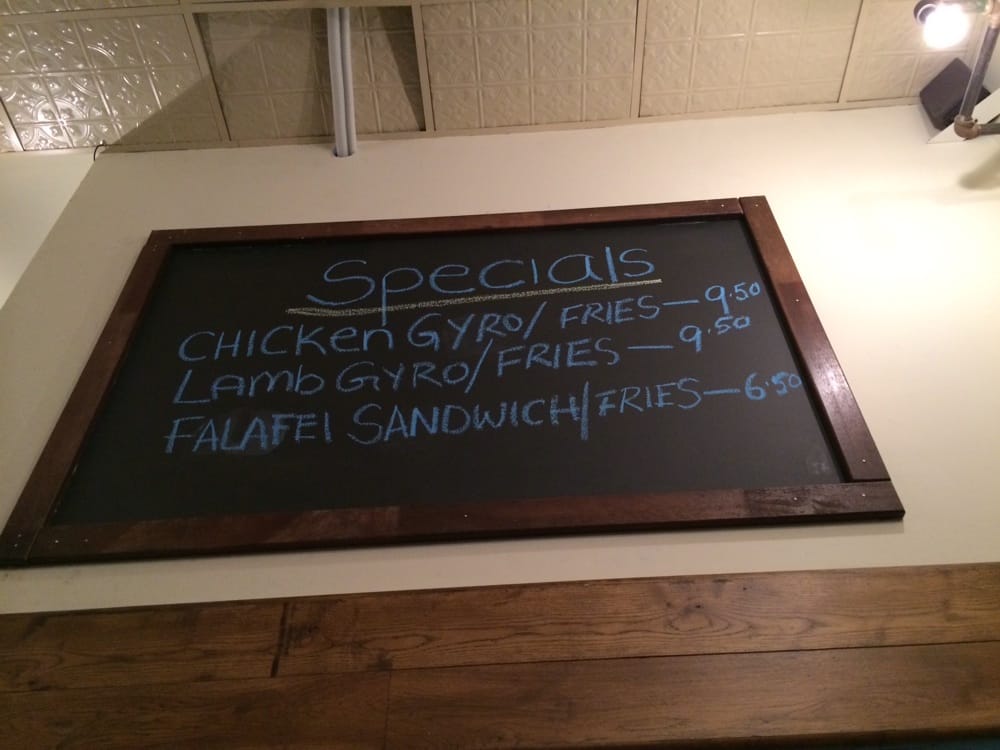 Specials
CHICKen GYRO/ FRIES — 9.50
Lamb GYRO/FRIES — 9.50
FALAFEl SANDWICH/FRIES — 6.50